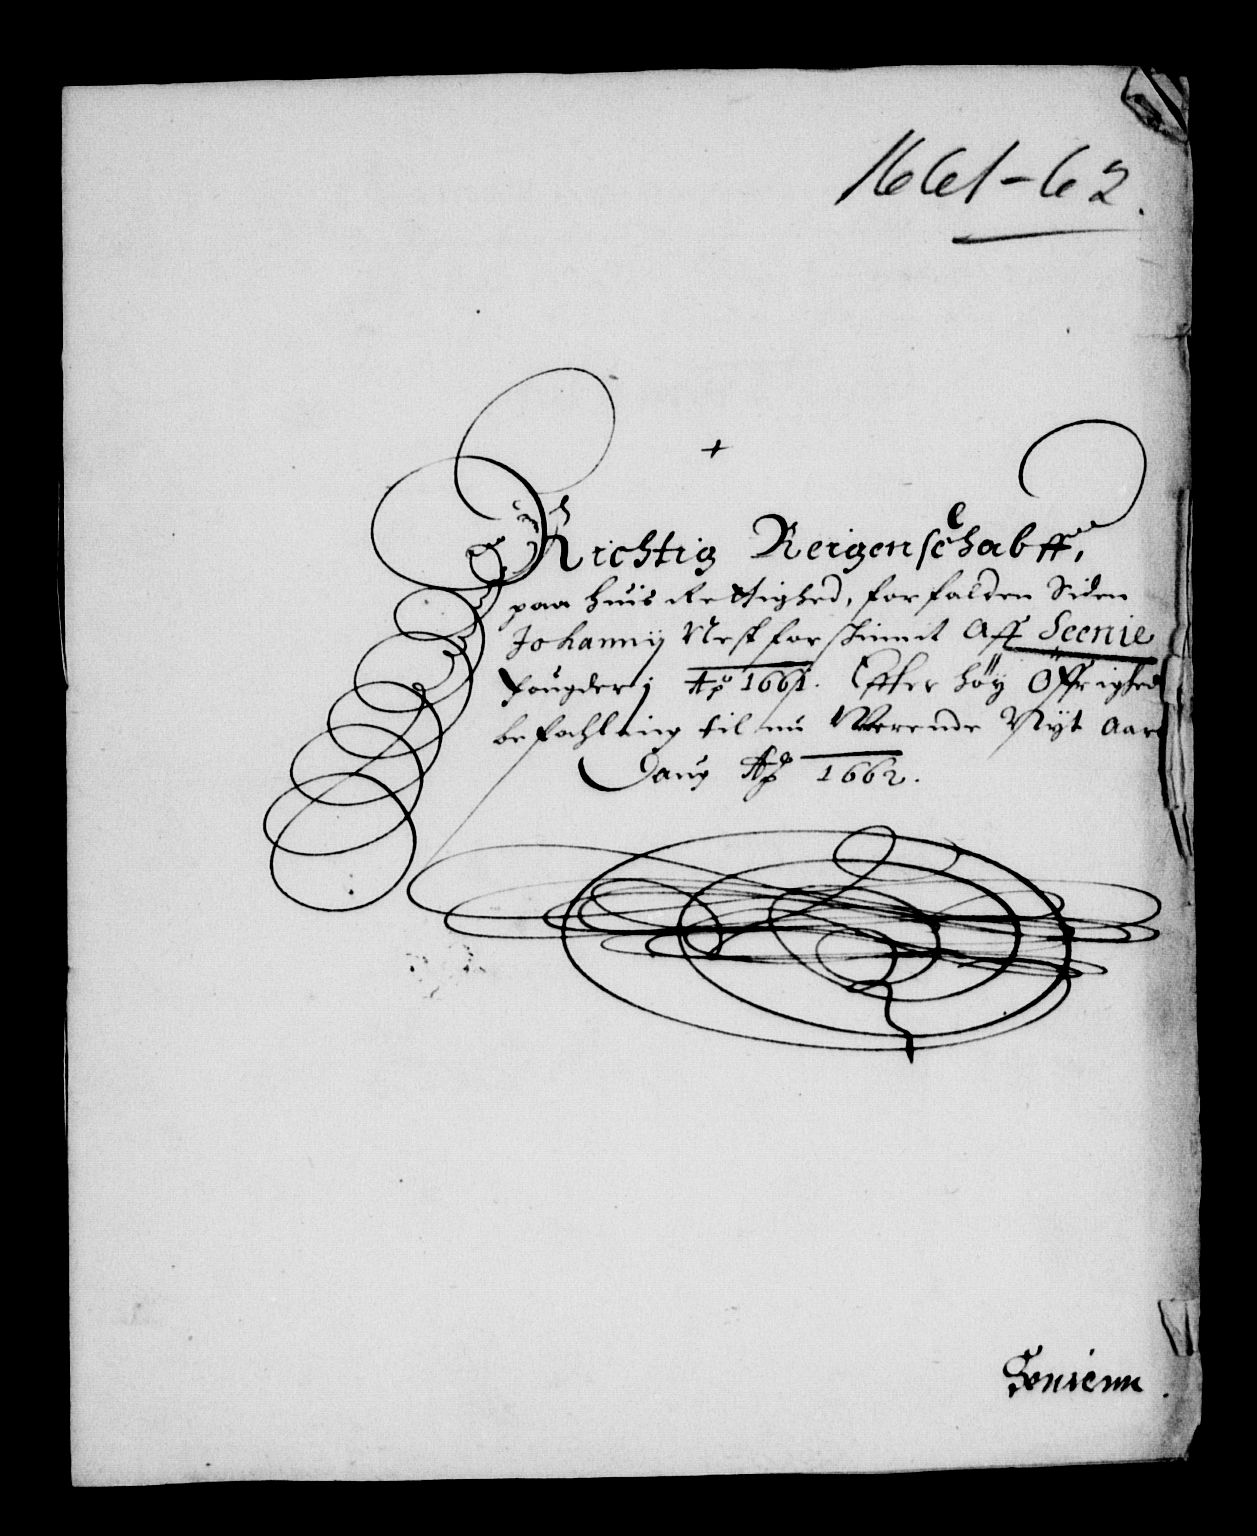 1661-62.
+
Richtig Reigenschabff,
paa huis Rettighed, forfalden Siden
Johannij Nest forschinnit Aff Seenie
fougderj Ao 1661. Effter höy Öffrighed
befahling til nu Werende Nyt Aars
Daug Ao 1662.
Senienn